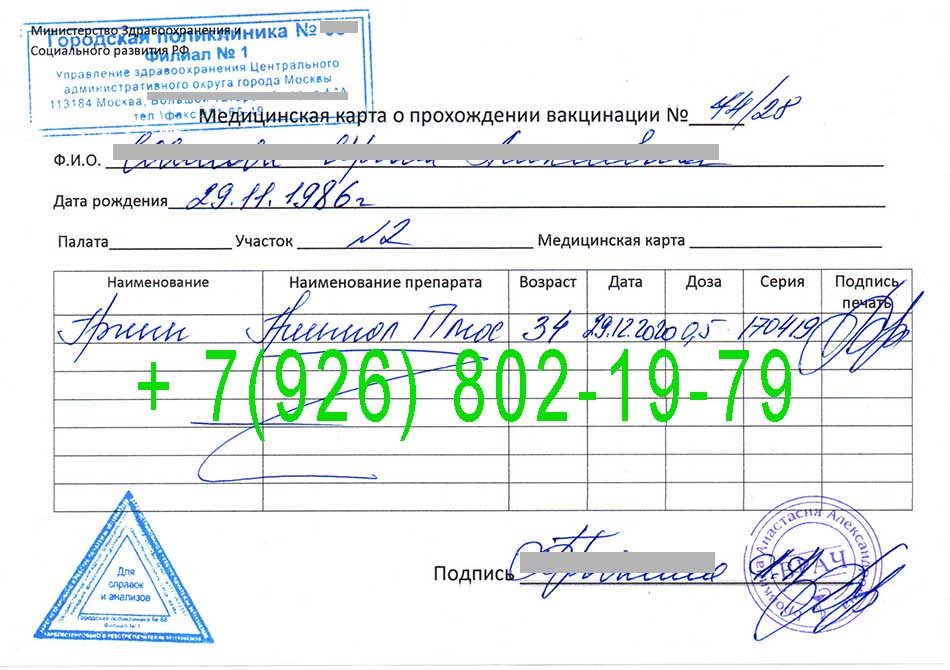 Министерство Здравоохранения и
Социального развития РФ
Городская поликлиника №
Филиал № 1
Управление здравоохранения Центрального
административного округа города Москвы
113184 Москва,
тел \факс
Медицинская карта о прохождении вакцинации № 44/28
Ф.И.О.
Дата рождения 29.11.1986г
Палата Участок №2 Медицинская карта
Наименование Наименование препарата Возраст Дата Доза Серия Подпись печать
Грипп Плюс 34 29.12.2020 0,5 170419
+ 7(926) 802-19-79
Для
справок
и анализов
Городская поликлиника № 68
Филиал № 1
Подпись
Анастасия
ВРАЧ